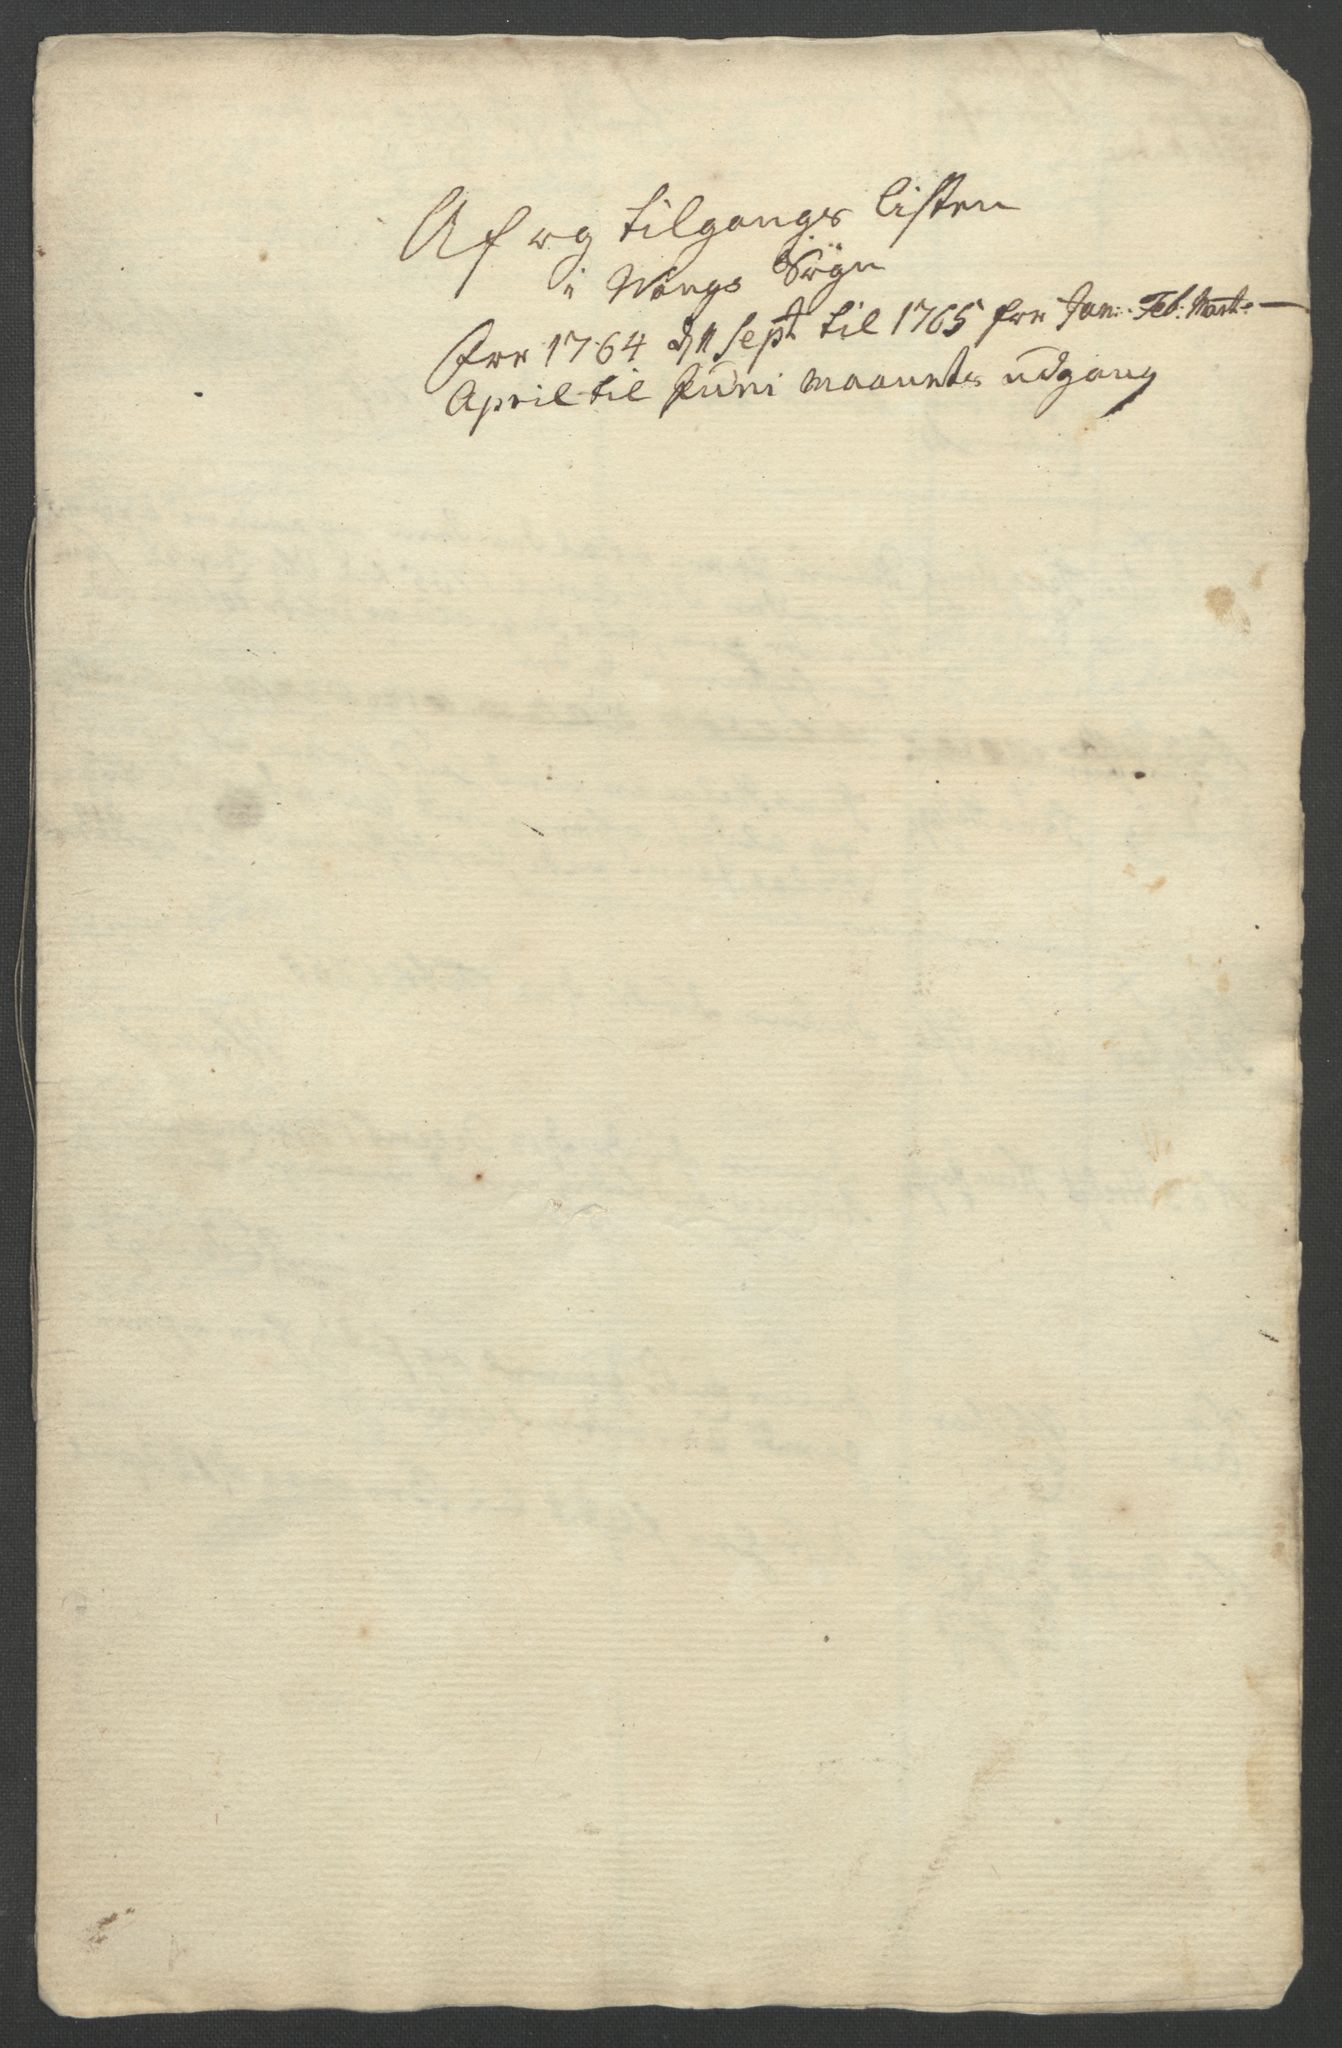 Af og tilgangs listen
i Wangs Sogn
for 1764 d 11 Sept til 1765 for Jan: Feb: Marti
April til Juni maanets udgang